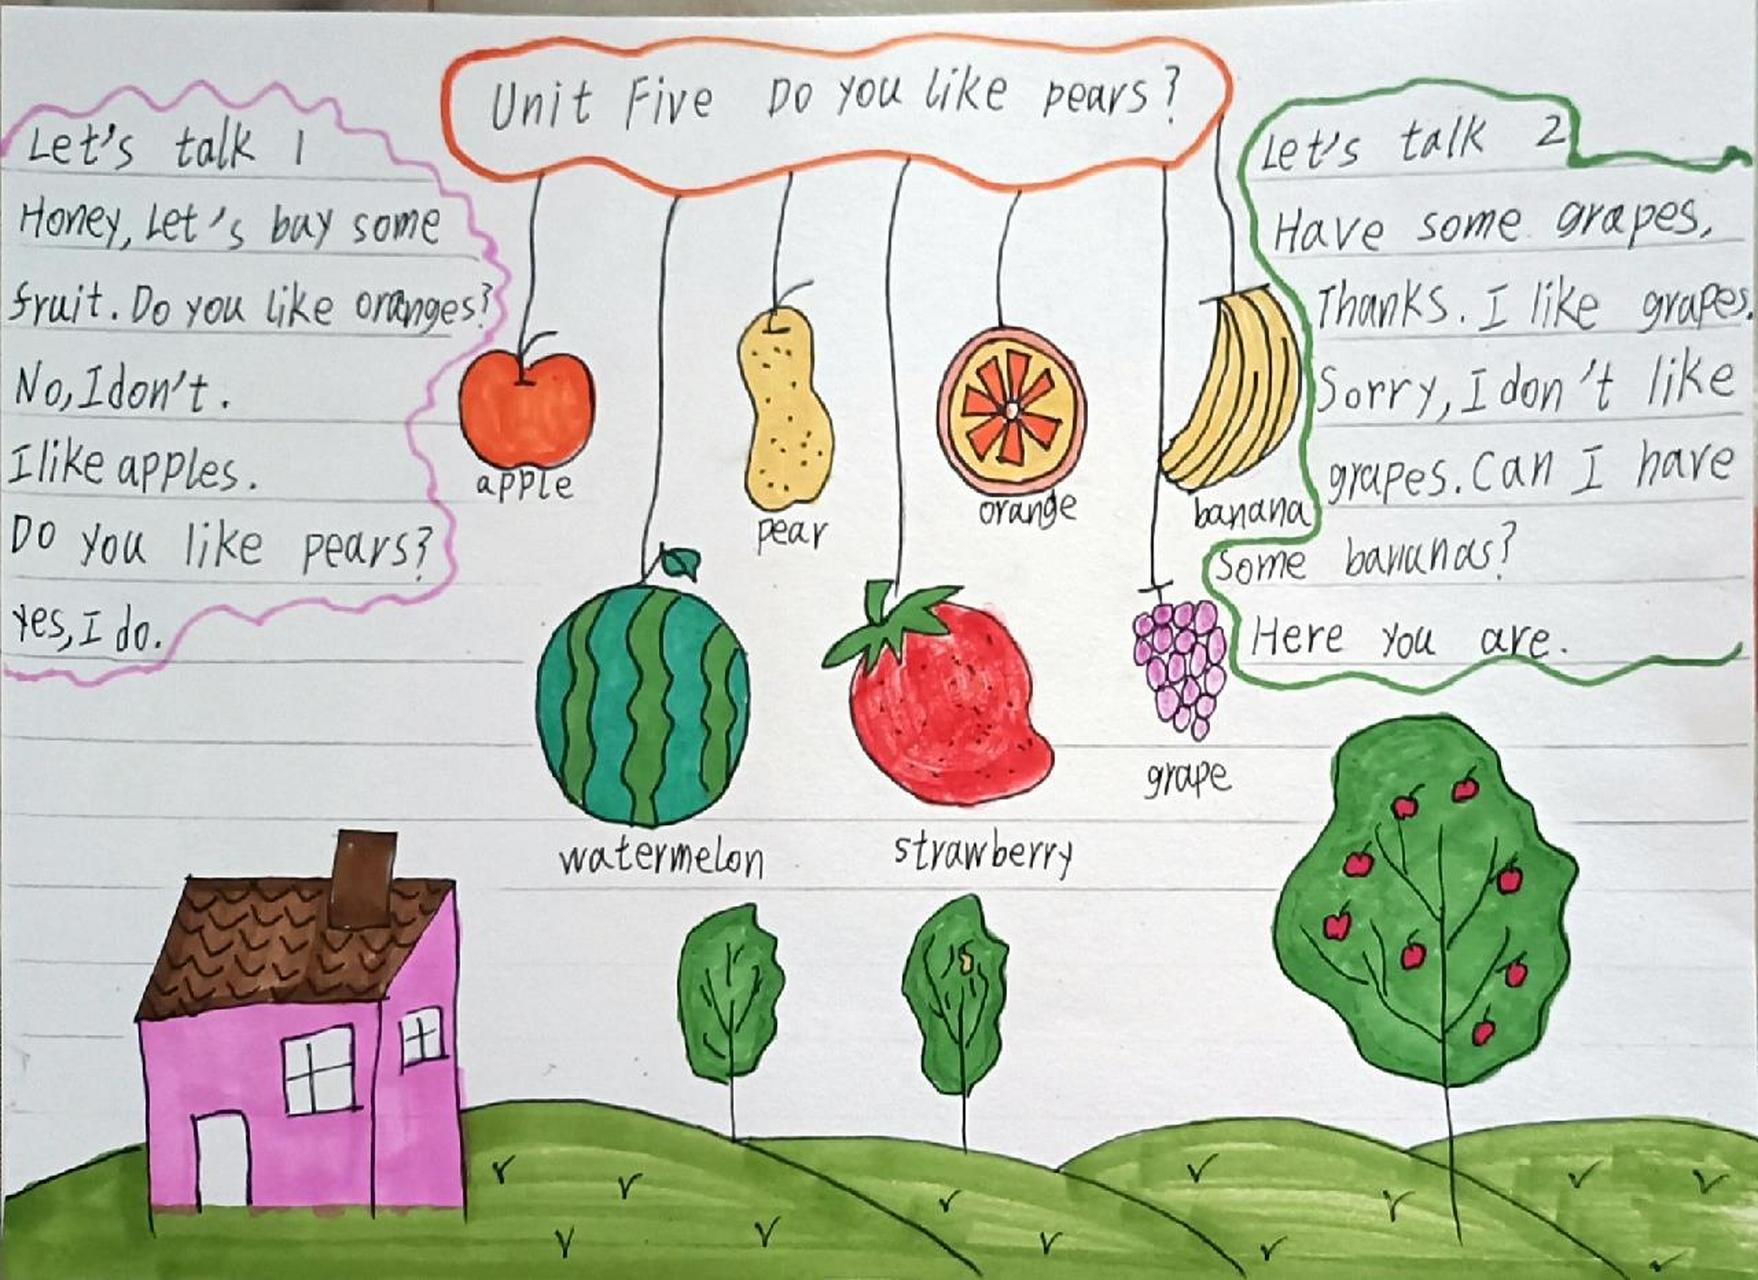 Unit Five Do you like pears?
Let's talk 1
Honey, Let's buy some
fruit. Do you like oranges?
No, I don't.
I like apples.
Do you like pears?
Yes, I do.
apple
pear
orange
banana
watermelon
strawberry
grape
Let's talk 2
Have some grapes,
Thanks. I like grapes.
Sorry, I don't like
grapes. Can I have
some bananas?
Here you are.